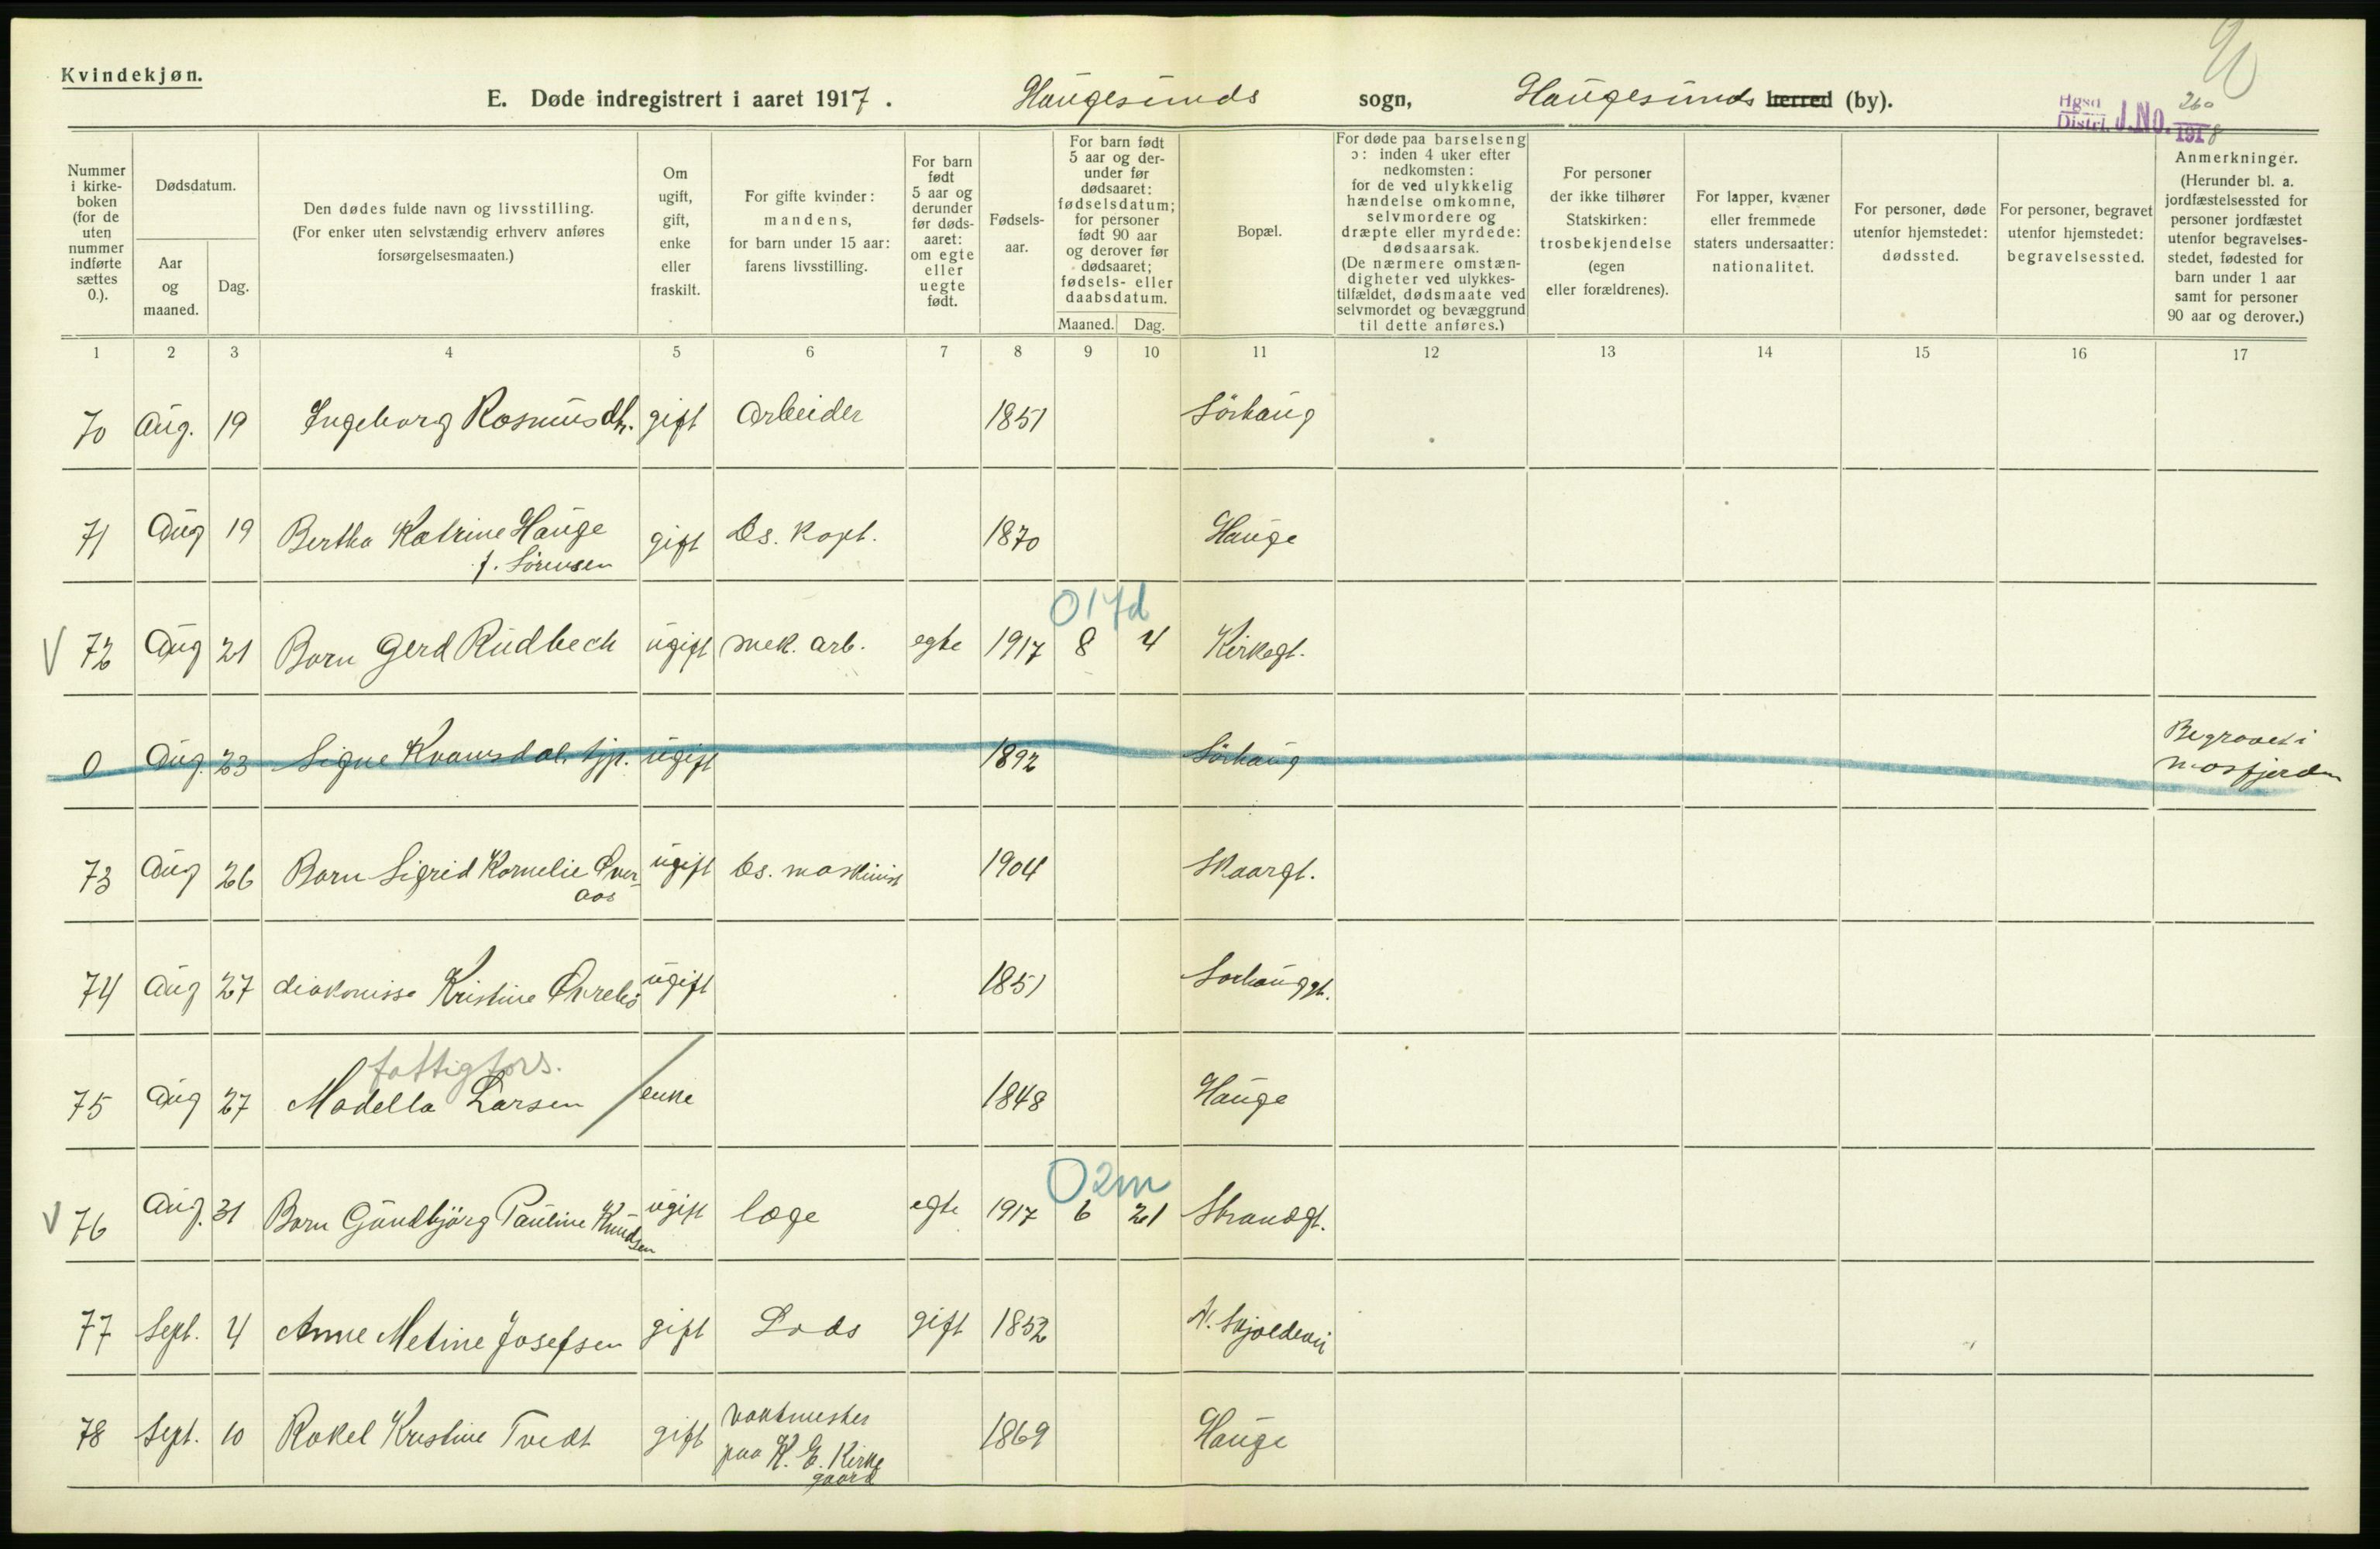 Kvindekjøn.
E. Døde indregistrert i aaret 1917. Haugesunds sogn, Haugesunds herred (by).
Hgsd Distr. J.No. 260 1918
Nummer i kirke-boken (for de uten nummer indførte sættes 0.).
Dødsdatum.
Aar og maaned.
Dag.
Den dødes fulde navn og livsstilling. (For enker uten selvstændig erhverv anføres forsørgelsesmaaten.)
Om ugift, gift, enke eller fraskilt.
For gifte kvinder: mandens, for barn under 15 aar: farens livsstilling.
For barn født 5 aar og derunder før døds-aaret: om egte eller uegte født.
Fødsels-aar.
For barn født 5 aar og der-under før dødsaaret: fødselsdatum; for personer født 90 aar og derover før dødsaaret; fødsels- eller daabsdatum.
Maaned. Dag.
Bopæl.
For døde paa barselseng ɔ: inden 4 uker efter nedkomsten: for de ved ulykkelig hændelse omkomne, selvmordere og dræpte eller myrdede: dødsaarsak. (De nærmere omstæn-digheter ved ulykkes-tilfældet, dødsmaate ved selvmordet og bevæggrund til dette anføres.)
For personer der ikke tilhører Statskirken: trosbekjendelse (egen eller forældrenes).
For lapper, kvæner eller fremmede staters undersaatter: nationalitet.
For personer, døde utenfor hjemstedet: dødssted.
For personer, begravet utenfor hjemstedet: begravelsessted.
Anmerkninger. (Herunder bl. a. jordfæstelsessted for personer jordfæstet utenfor begravelses-stedet, fødested for barn under 1 aar samt for personer 90 aar og derover.)
1 2 3 4 5 6 7 8 9 10 11 12 13 14 15 16 17
70 Aug. 19 Ingeborg Rasmusdtr. gift Arbeider 1851 Sörhaug
71 Aug 19 Bertha Katrine Hauge gift Ds. Kapt. 1870 Hauge
f. Sörensen
0 17d
V 72 Aug 21 Barn Gerd Rudbech ugift mek. arb. egte 1917 8 4 Kirkegt.
0 Aug. 23 Signe Kvamsdal, tjp. ugift 1892 Sörhaug Begravet i
Mosfjorden
73 Aug 26 Barn Sigrid Kornelie Över- ugift Ds. maskinist 1904 Skaargt.
aas
74 Aug 27 diakonisse Kristine ugift 1851 Sörhauggt.
fattigfors.
75 Aug 27 Madella Larsen / enke 1848 Hauge
0 2m
V 76 Aug. 31 Barn Gundbjörg Pauline Knudsen ugift læge egte 1917 6 21 Strandgt.
77 Sept. 4 Anne Metine Josefsen gift Lods gift 1852 N. Skjoldavei
78 Sept. 10 Rakel Kristine Tvedt gift vaktmester 1869 Hauge
paa K. E. Kirke
gaard